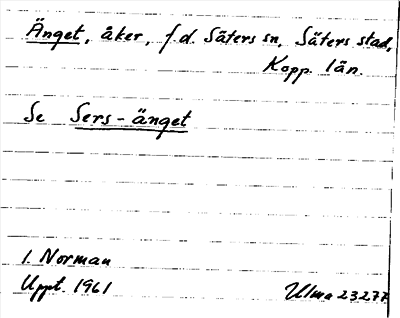 Änget, åker, f.d. Säters sn, Säters stad,
Kopp. län.
Se Sers-änget
I. Norman
Uppt. 1961
Ulma 23277